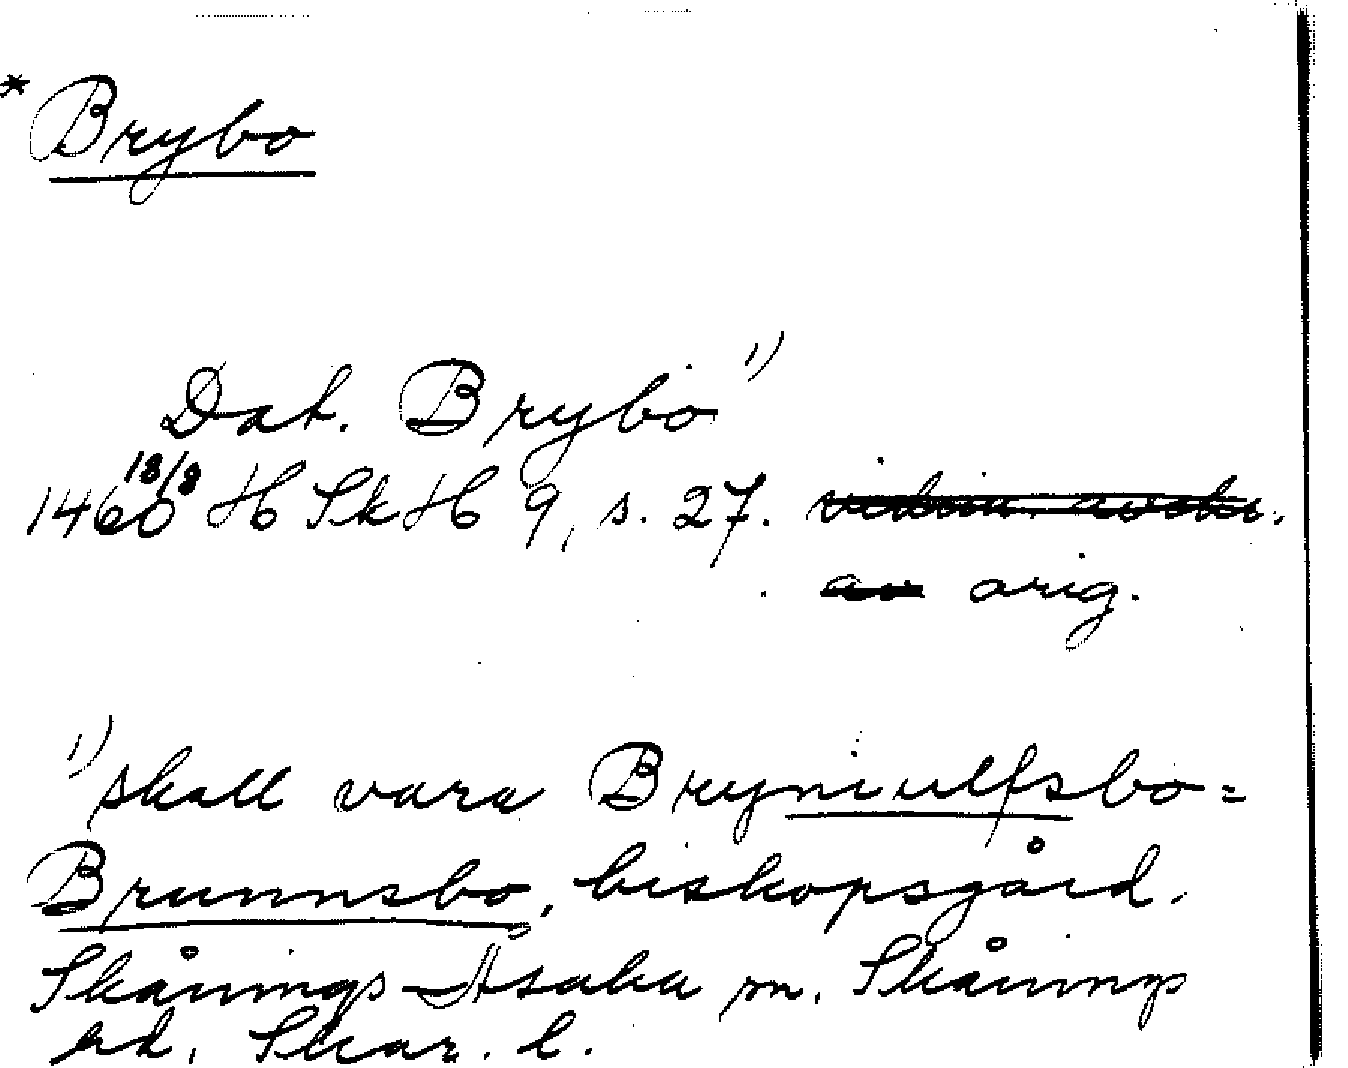 * Brybo
Dat. Brybo 1)
1460 18/8 HSkH 9, s. 27. vidim. avskr.
av orig.
1) skall vara Bryniulfsbo =
Brunnsbo, biskopsgård.
Skånings-Åsaka sn. Skånings
hd. Skar. l.